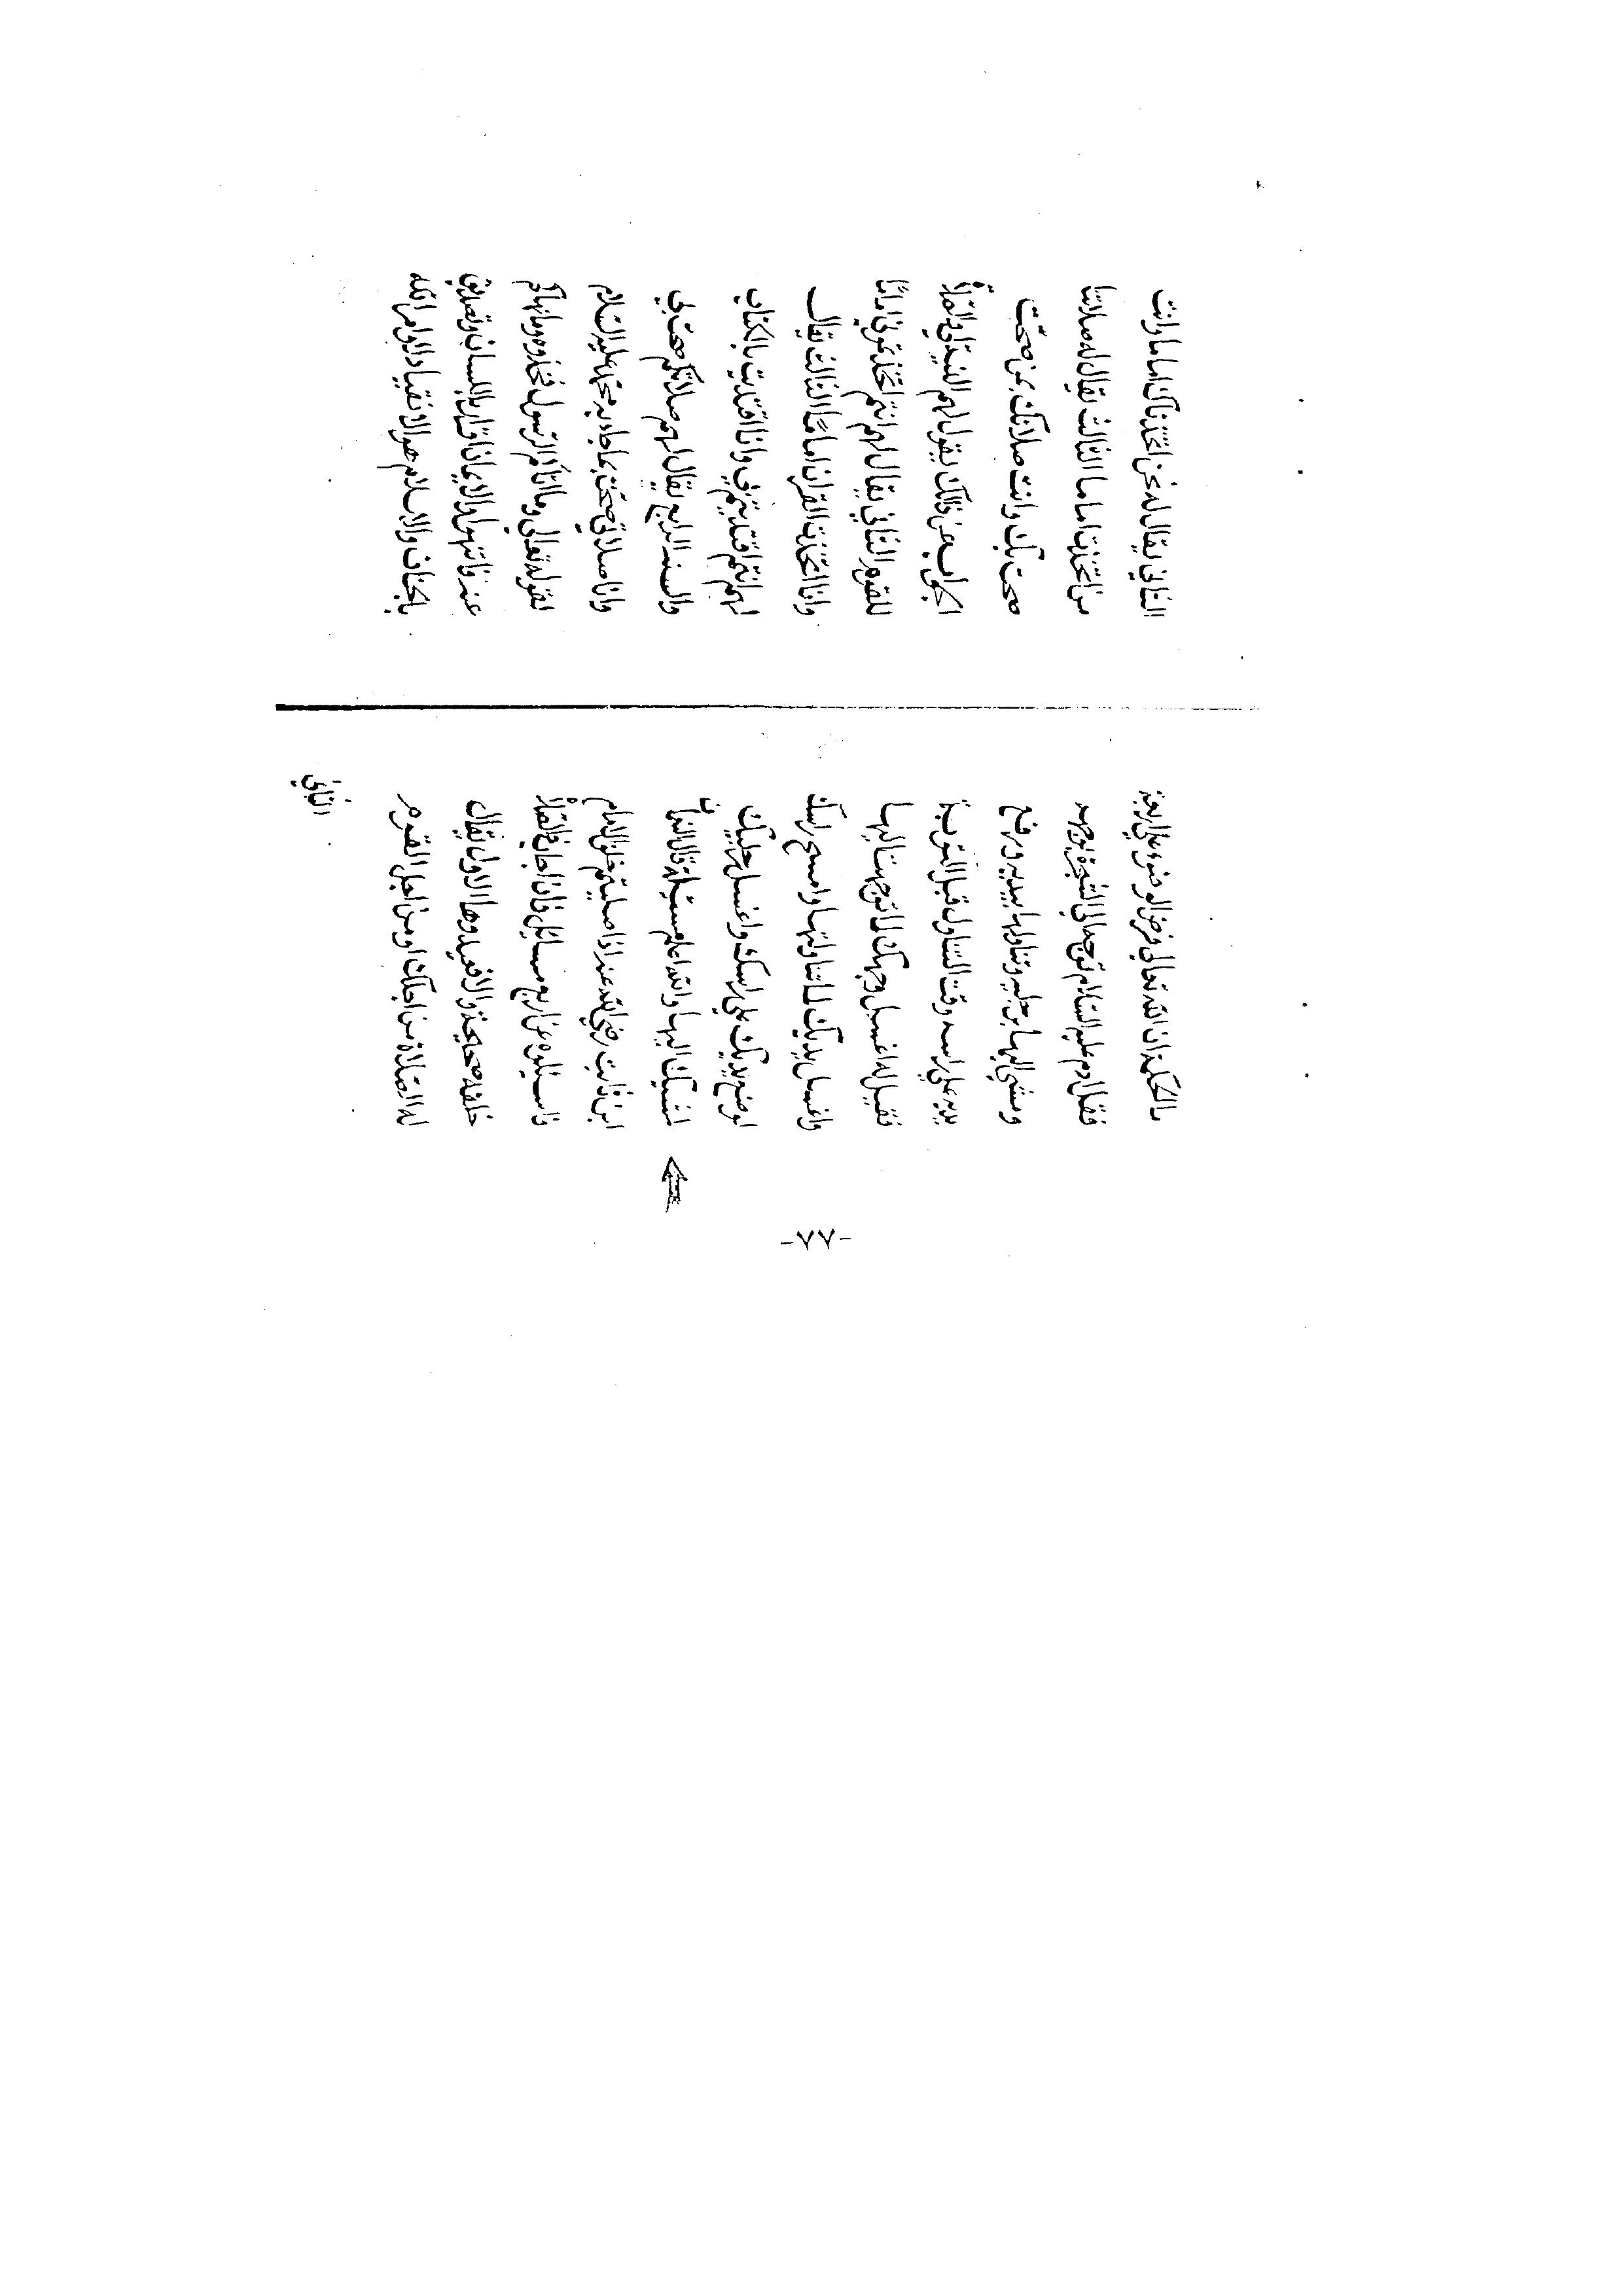 ما الحكمة ان الله تعالى فرض الوضوء على اربعة
فقال ادم عليه السلام توجه الى الشجرة بوجهه
ومشى اليها برجليه وتناولها بيديه ورفع
يديه على راسه وقت التناول قبل التوبة
فقيل له اغسل وجهك لما توجهت اليها
واغسل يديك لما تناولتها وامسح راسك
لوضع يديك على راسك واغسل رجليك
لمشيك اليها والله اعلم مسئلة قال النعمان
ابن ثابت رضي الله عنه اذا صليتم خلف الامام
فاسئلوه عن اربع مسائل فان اجاب فالصلاة
خلفه صحيحة والا فعيدوها الاول يقال
له الصلاة من اجلك او من اجل القوم
الثاني
الثاني يقال له نحن اتخذناك اماما وانت
من اتخذت اماما الثالث يقال له صلاتنا
صحت بك وانت صلاتك بمن صحت
الجواب عن ذلك يقول لهم النية في الصلاة
للقوم الثاني يقال لهم انتم اتخذتموني اماما
وانا اتخذت القران اماما الثالث يقال
لهم انتم اقتديتم بي وانا اقتديت بالكتاب
والسنة الرابع يقال لهم صلاتكم صحت بي
وانا صلاتي صحت بما جاء به محمد عليه السلام
لقوله تعالى وما اتاكم الرسول فخذوه وما نهاكم
عنه فانتهوا والايمان اقرار باللسان وتصديق
بالجنان والاسلام هو الانقياد لاوامر الله
-٧٧-